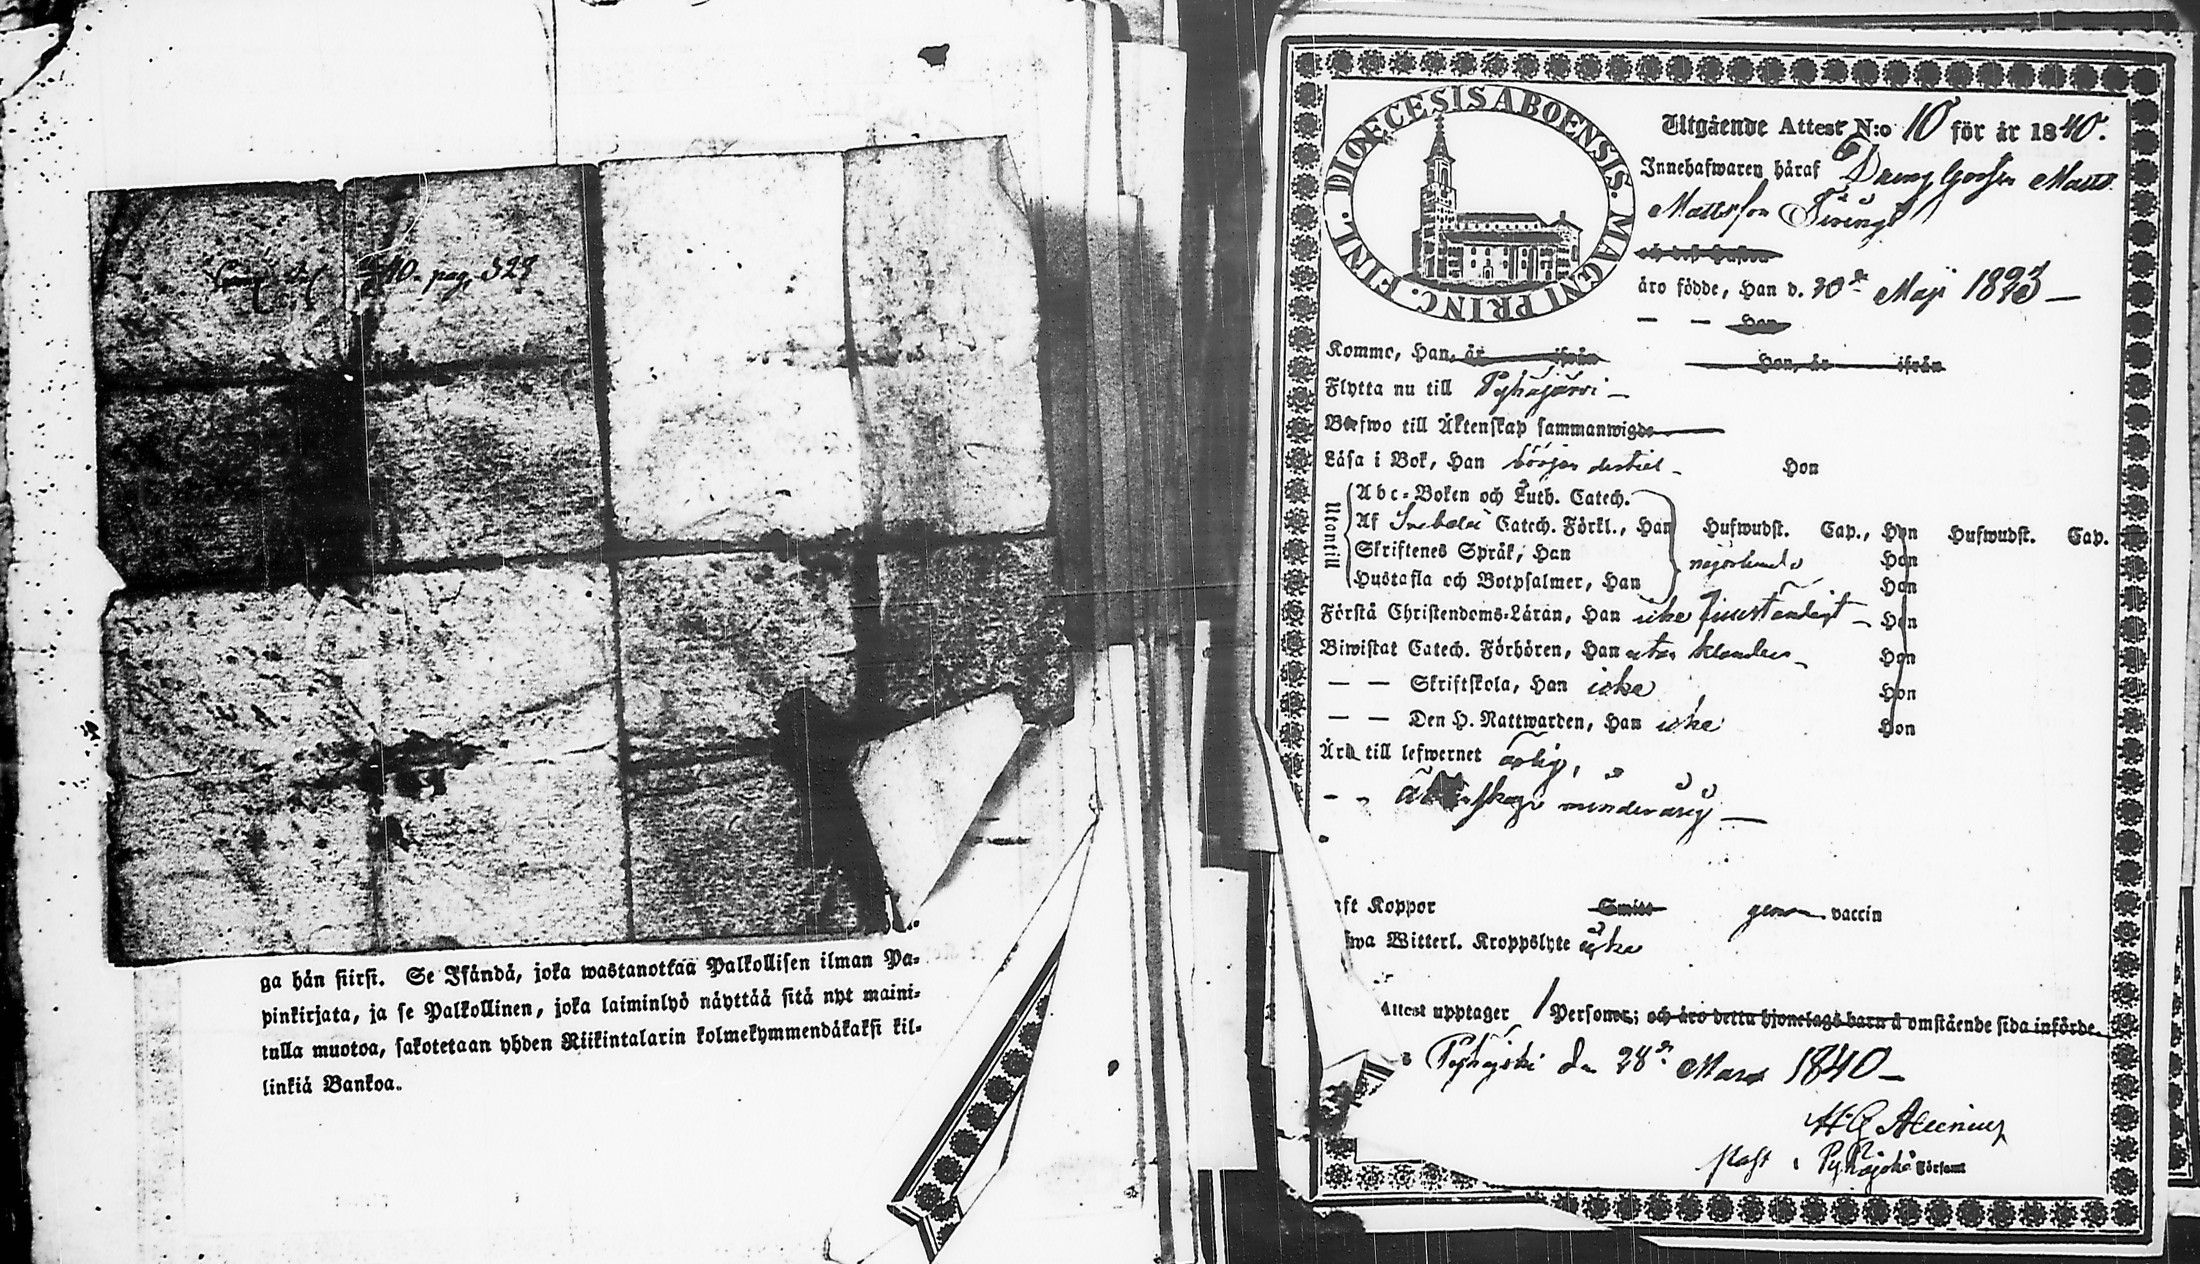 40. pag. 328
ga hän siirsi. Se Isändä, joka wastanottaa Palkollisen ilman Pa-
pinkirjata, ja se Palkollinen, joka laiminlyö näyttää sitä nyt maini-
tulla muotoa, sakotetaan yhden Riikintalarin kolmekymmendäkaksi kil-
linkiä Bankoa.
DIOECESIS ABOENSIS. MAGNI PRINC. FINL.
Utgående Attest N:o 10 för år 1840.
Innehafwaren häraf Dreng Gossen Matts
Mattsson
äro födde, Han d. 20de Maji 1823 —
— — Hon
Komme, Han, år ifrån Hon, år ifrån
Flytta nu till Pyhäjärvi —
Blefwo till Äktenskap sammanwigde
Läsa i Bok, Han börjar Hon
Utantill
Abc-Boken och Luth. Catech.
Af Svebelii Catech. Förkl., Han Hufwudst. Cap., Hon Hufwudst. Cap.
Skriftenes Språk, Han någorlunda Hon
Hustafla och Botpsalmer, Han Hon
Förstå Christendoms-Läran, Han icke fullständigt — Hon
Biwistat Catech. Förhören, Han utan klander — Hon
— — Skriftskola, Han icke Hon
— — Den H. Nattwarden, Han icke Hon
Äro till lefwernet ärlig,
— — äktenskap minderårig —
aft Koppor Smitt genom vaccin
fwa Witterl. Kroppslyte icke
Attest upptager 1 Personer; och äro detta hjonelags barn å omstående sida införde.
Pyhäjoki d. 28de Mars 1840 —
Past i Pyhäjoki Församl